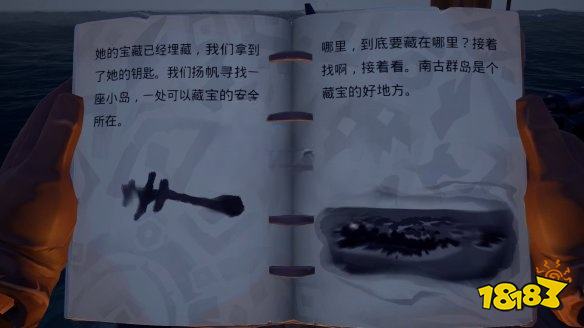 她的宝藏已经埋藏，我们拿到
了她的钥匙。我们扬帆寻找一
座小岛，一处可以藏宝的安全
所在。
哪里，到底要藏在哪里？接着
找啊，接着看。南古群岛是个
藏宝的好地方。
18183